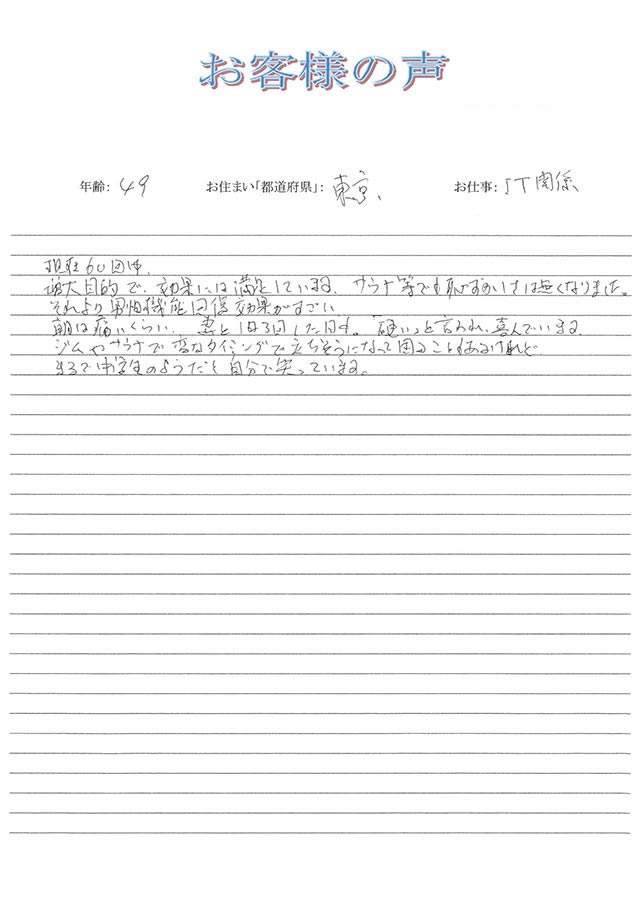 お客様の声
年齢: 49 お住まい「都道府県」: 東京、 お仕事: IT関係
現在60回中、
増大目的で、効果には満足しています、サウナ等でも恥ずかしさは無くなりました。
それより男性機能回復効果がすごい
朝は痛いくらい、妻と1日3回した日も。「硬い」と言われ、喜んでいます
ジムやサウナで変なタイミングで立ちそうになって困ることもあるけれど
まるで中学生のようだと自分で笑っています。